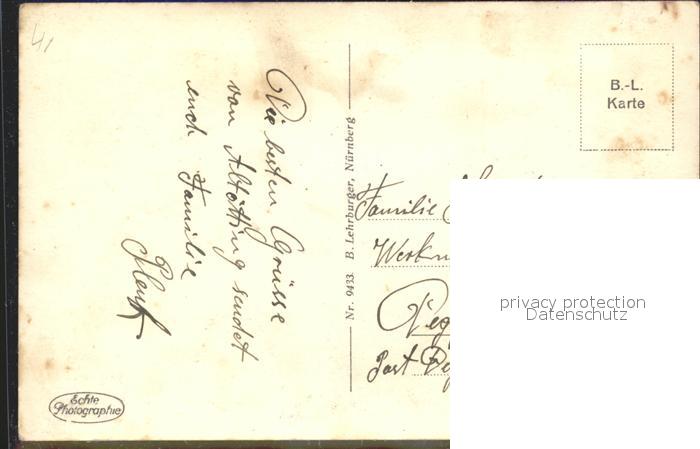 41
Die besten Grüsse
von Altötting sendet
euch Familie
Nr. 9433 B. Lehrburger, Nürnberg
B.-L.
Karte
Familie
Post
privacy protection
Datenschutz
Echte
Photographie